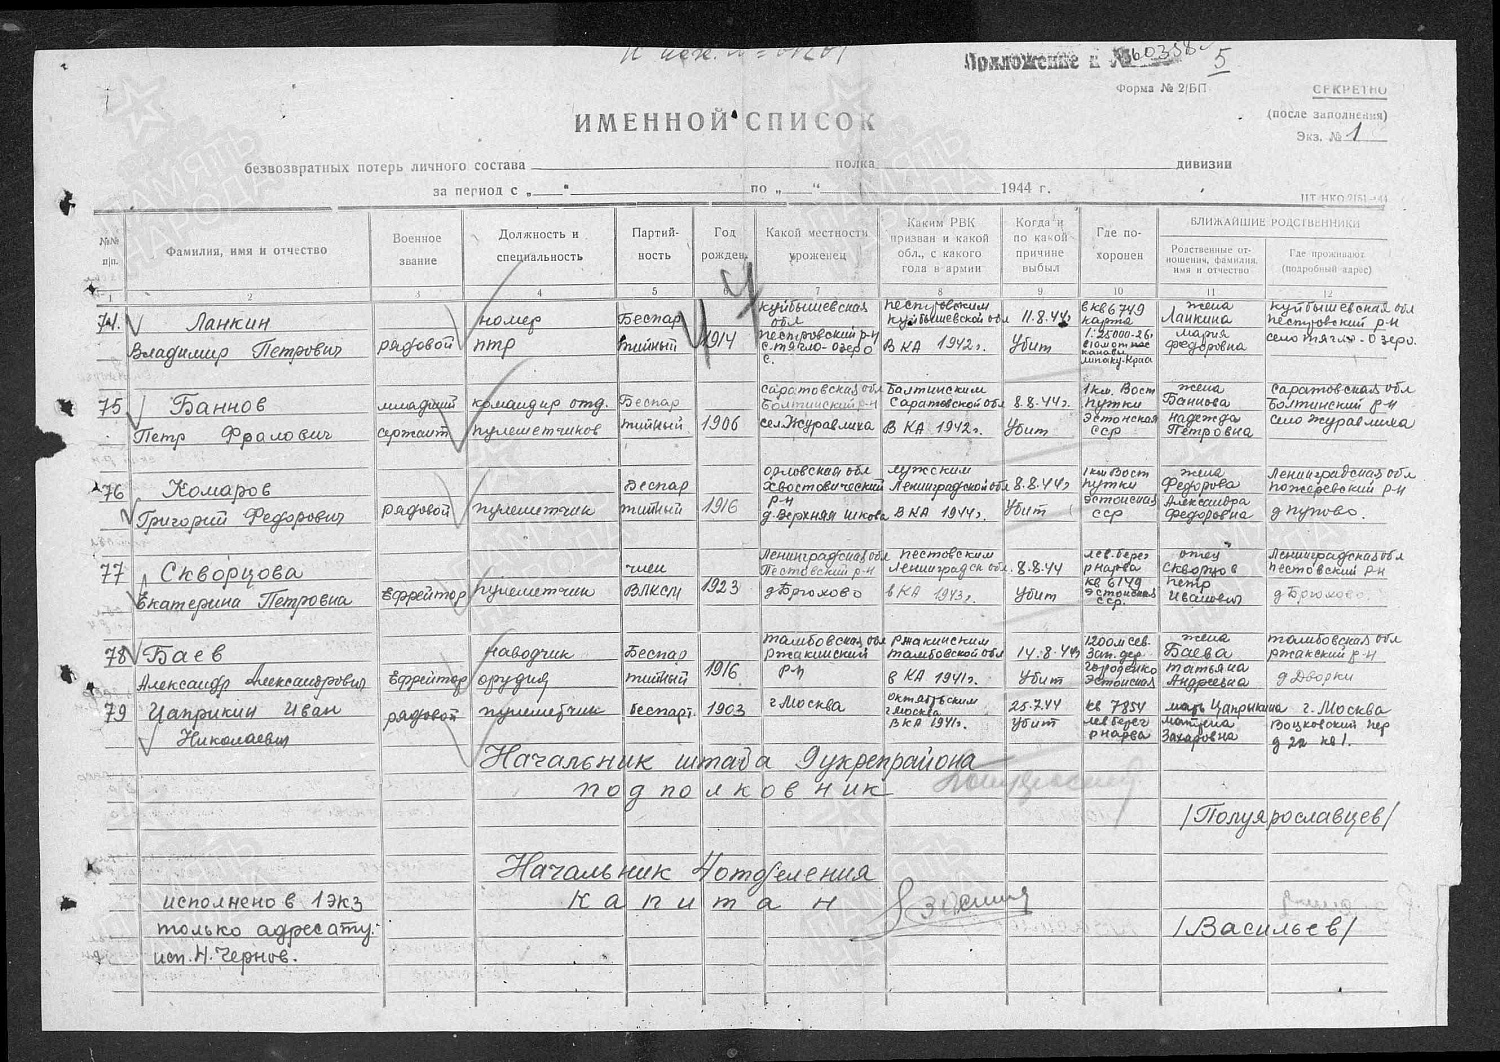 Приложение к № 60358
5
Форма № 2/БП
СЕКРЕТНО
(после заполнения)
Экз. № 1
ИМЕННОЙ СПИСОК
безвозвратных потерь личного состава полка дивизии
за период с „ “ по „ “ 1944 г.
№№ п/п. Фамилия, имя и отчество Военное звание Должность и специальность Партийность Год рожден. Какой местности уроженец Каким РВК призван и какой обл., с какого года в армии Когда и по какой причине выбыл Где похоронен БЛИЖАЙШИЕ РОДСТВЕННИКИ
Родственные отношения, фамилия, имя и отчество Где проживают (подробный адрес)
1 2 3 4 5 6 7 8 9 10 11 12
74. Ланкин номер Беспар куйбышевская обл пестровским куйбышевской обл 11.8.44 в кв 6749 карта жена Ланкина куйбышевская обл пестровский р-н
Владимир Петрович рядовой птр тийный 1914 пестровский р-н с. тягло-озеро В КА 1942г. Убит 1:25000-26 мария федоровна село тягло-озеро.
75 Баннов младший командир отд. Беспар саратовская обл Балтинский р-н Балтинским Саратовской обл 8.8.44г. 1км. Вост путки жена Баннова саратовская обл Болтинский р-н
Петр Фролович сержант пулеметчиков тийный 1906 сел Журавлиха В КА 1942г. Убит Эстонская ССР надежда Петровна село Журавлиха
76 Комаров Беспар орловская обл Хвостовический лужским Ленинградской обл 8.8.44г 1км Вост путки жена Федорова Ленинградская обл пожеревский р-н
Григорий Федорович рядовой пулеметчик тийный 1916 р-н д. Верхняя шкова В КА 1944г. Убит эстонская ССР Александра Федоровна
77 Скворцова член Ленинградская обл Пестовский р-н пестовским Ленинградск обл. 8.8.44 лев. берег р нарва отец Скворцов Ленинградская обл пестовский р-н
Екатерина Петровна Ефрейтор пулеметчик ВЛКСМ 1923 д Брюхово в КА 1943г. Убит кв 6149 эстонская ССР. петр Иванович д Брюхово
78 Баев наводчик Беспар тамбовская обл ржакинский ржакинским тамбовской обл 14.8.44 1200м сев. Зап. дер жена Баева тамбовская обл ржакский р-н
Александр Александрович Ефрейтор орудия тийный 1916 р-н в КА 1941г. Убит городенко Эстонская татьяна Андреевна д Дворки
79 Цаприкин Иван рядовой пулеметчик беспарт. 1903 г Москва октябрьским г москва 25.7.44 кв 7854 мать Цапрыкина г. Москва
Николаевич В КА 1941г. Убит лев берег р нарва матрена Захаровна Воцковский пер д 22 кв 1.
Начальник штаба 9 укрепрайона
подполковник
/Полуярославцев/
Начальник 4 отделения
капитан
/Васильев/
исполнено в 1 экз
только адресату.
исп. Н. Чернов.
ПАМЯТЬ НАРОДА